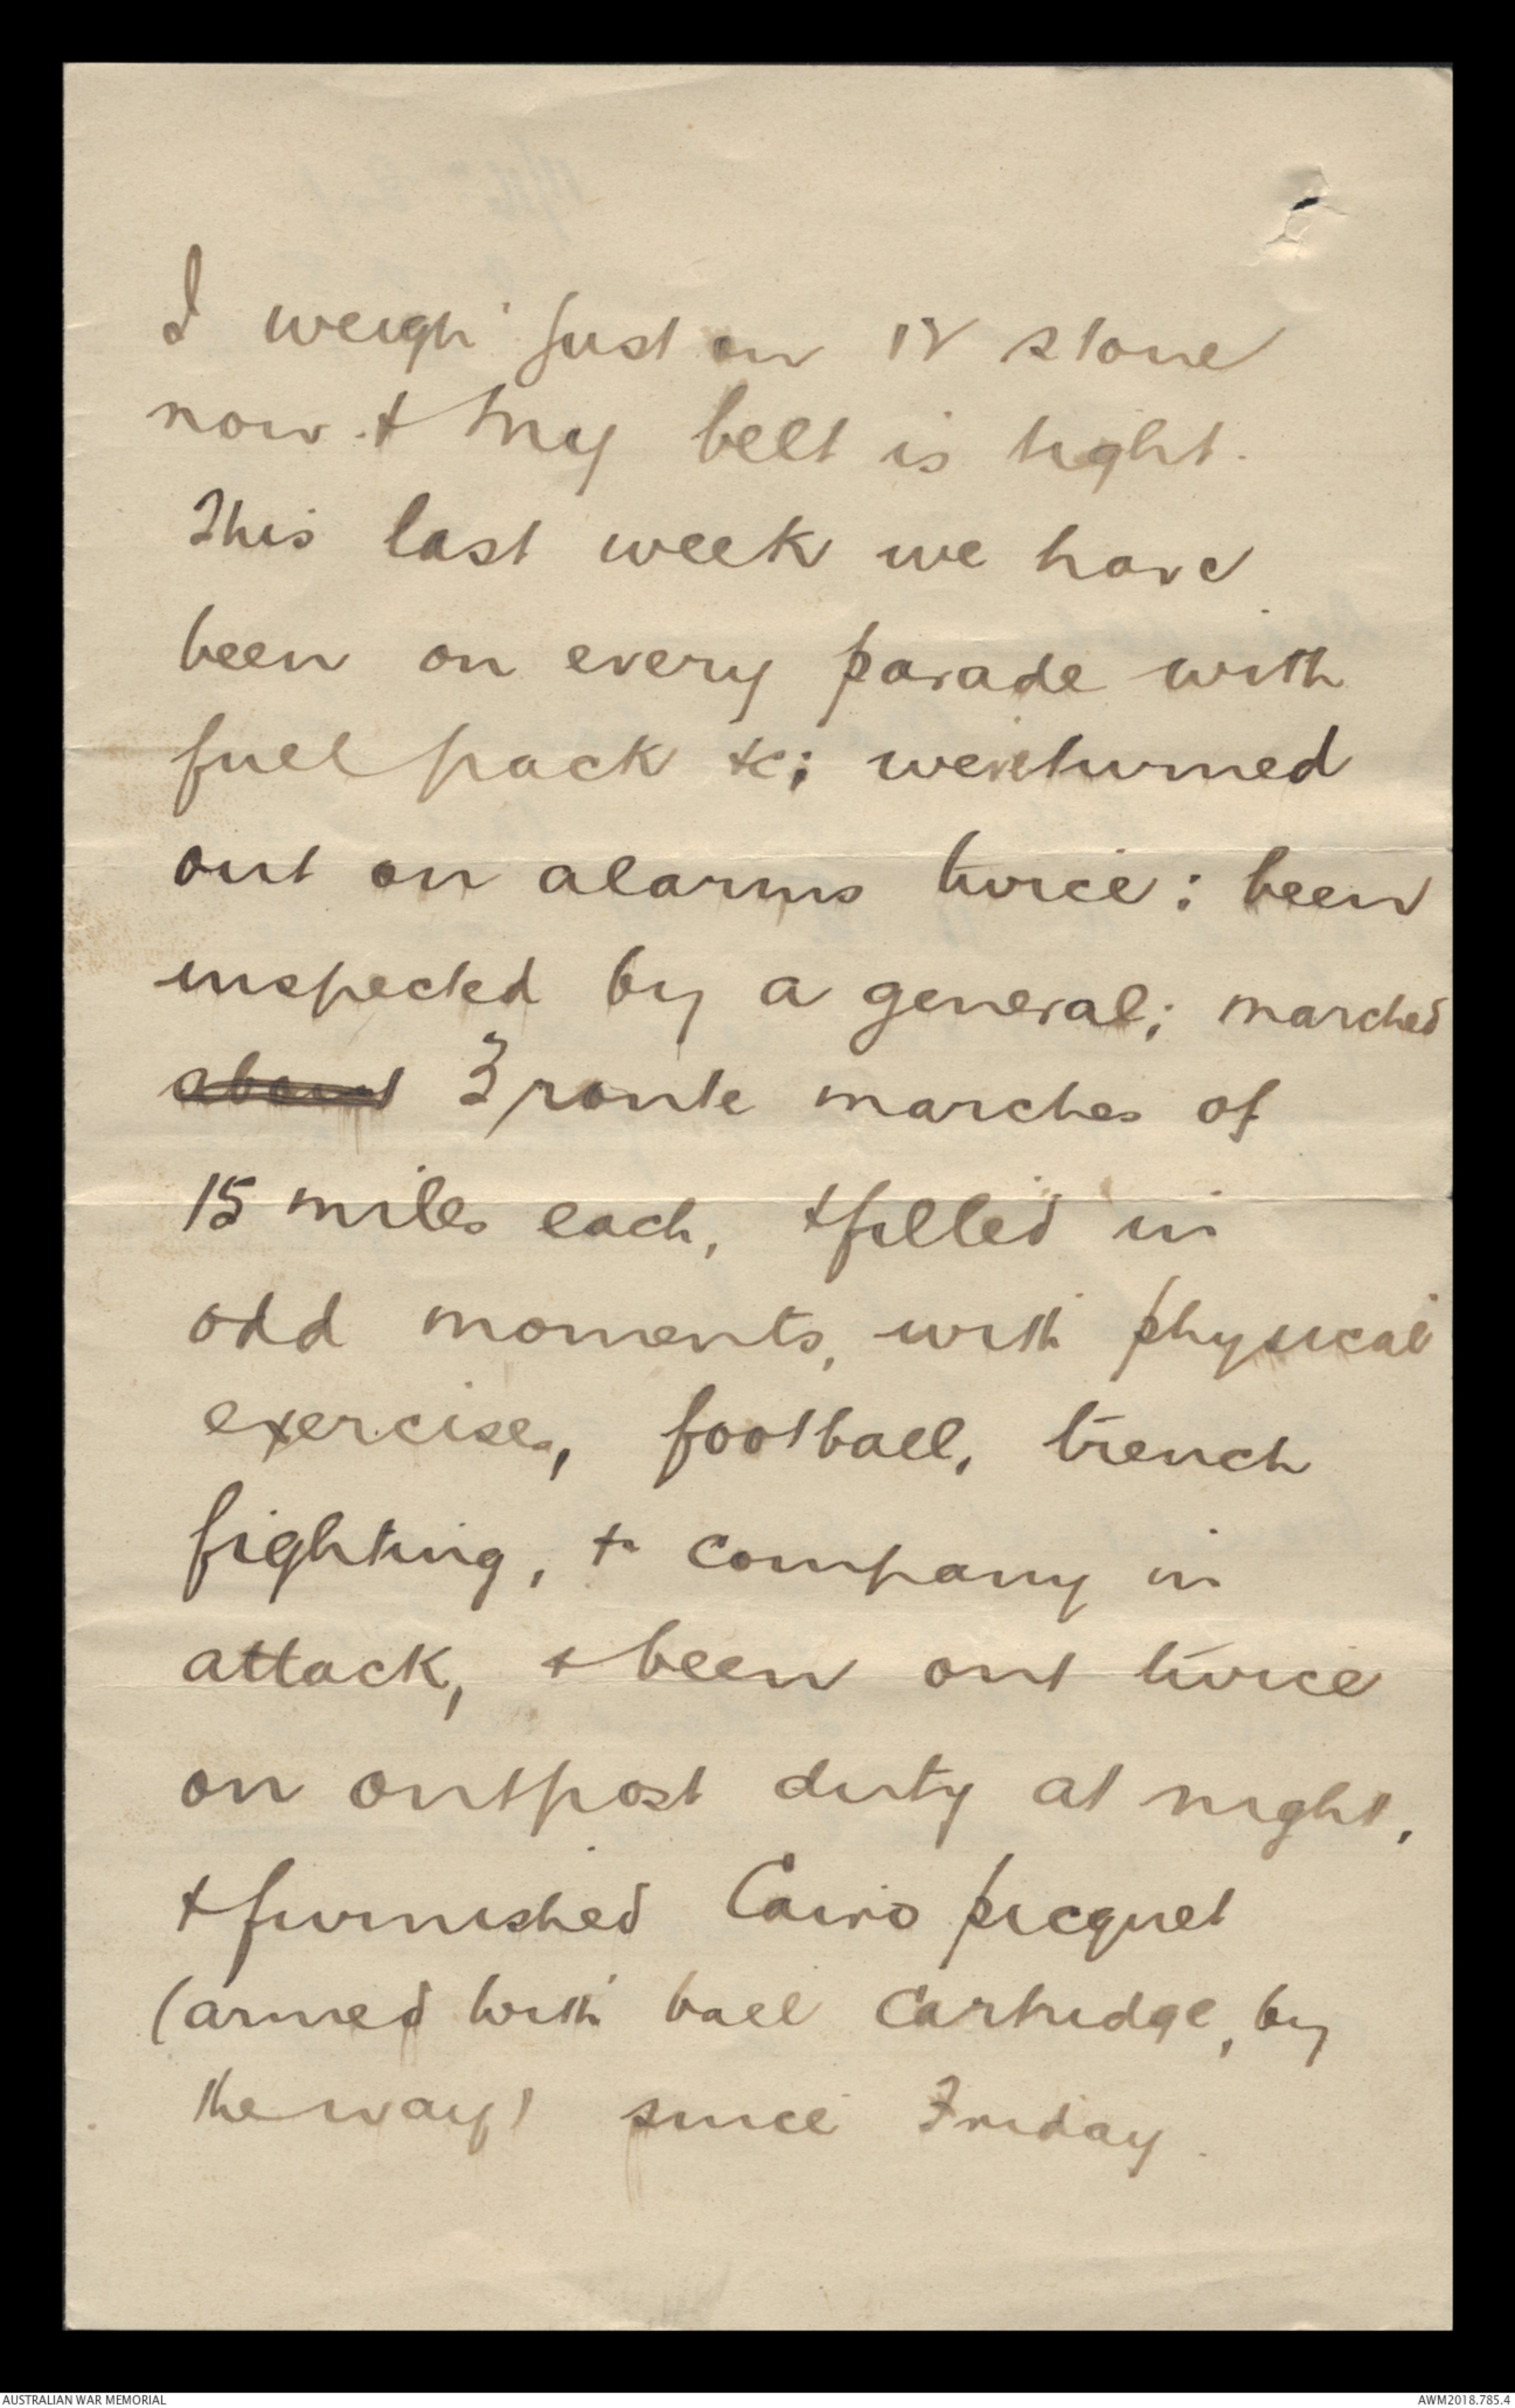 I weigh just on 12 stone
now & my belt is tight.
This last week we have
been on every parade with
full pack &c; were turned
out on alarms twice: been
inspected by a general; marched
about 3 route marches of
15 miles each, & filled in
odd moments, with physical
exercises, football, trench
fighting, & company in
attack, & been out twice
on outpost duty at night,
& furnished Cairo picquet
(armed with ball cartridge, by
the way) since Friday.
AUSTRALIAN WAR MEMORIAL
AWM2018.785.4